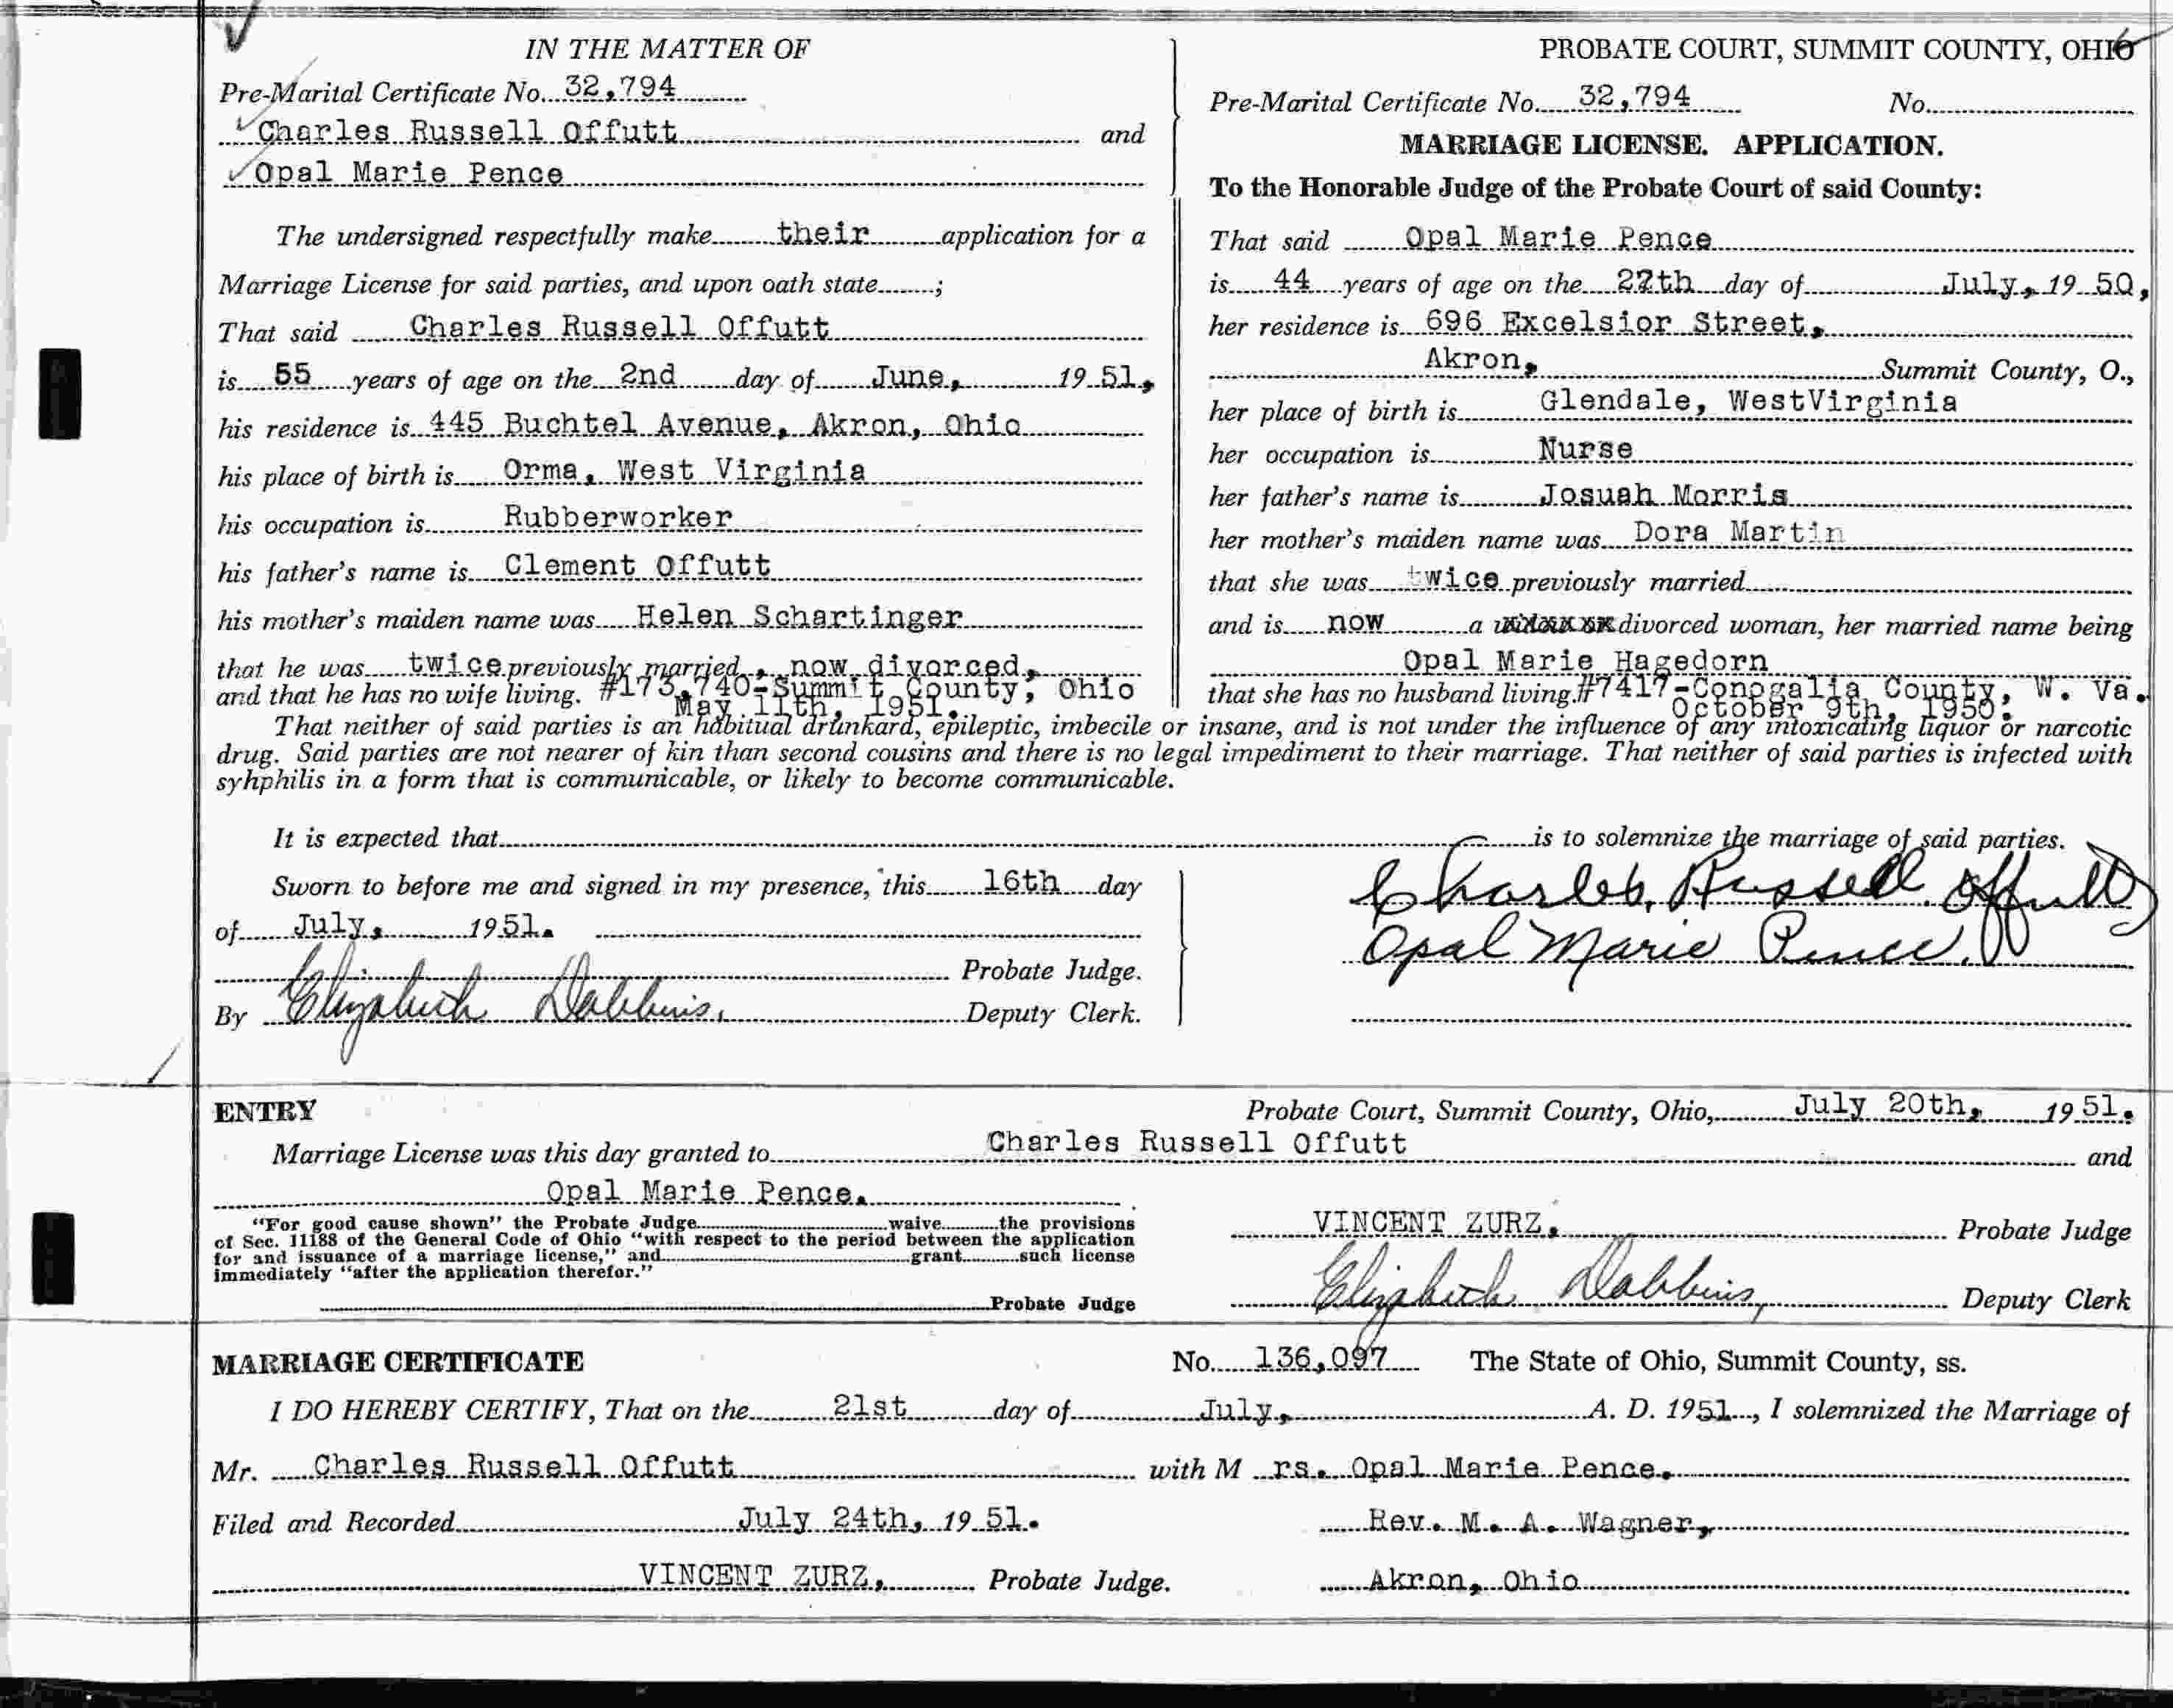 IN THE MATTER OF
Pre-Marital Certificate No. 32,794
Charles Russell Offutt and
Opal Marie Pence
The undersigned respectfully make their application for a
Marriage License for said parties, and upon oath state ;
That said Charles Russell Offutt
is 55 years of age on the 2nd day of June, 19 51,
his residence is 445 Buchtel Avenue, Akron, Ohio
his place of birth is Orma, West Virginia
his occupation is Rubberworker
his father's name is Clement Offutt
his mother's maiden name was Helen Schartinger
that he was twice previously married, now divorced,
and that he has no wife living. #173,740-Summit County, Ohio
May 11th, 1951.
PROBATE COURT, SUMMIT COUNTY, OHIO
Pre-Marital Certificate No. 32,794 No.
MARRIAGE LICENSE. APPLICATION.
To the Honorable Judge of the Probate Court of said County:
That said Opal Marie Pence
is 44 years of age on the day of July, 19 50,
her residence is 696 Excelsior Street,
Akron, Summit County, O.,
her place of birth is Glendale, WestVirginia
her occupation is Nurse
her father's name is Josuah Morris
her mother's maiden name was Dora Martin
that she was twice previously married
and is now a divorced woman, her married name being
Opal Marie Hagedorn
that she has no husband living. #7417-Conogalia County, W. Va.
October 9th, 1950.
That neither of said parties is an habitual drunkard, epileptic, imbecile or insane, and is not under the influence of any intoxicating liquor or narcotic
drug. Said parties are not nearer of kin than second cousins and there is no legal impediment to their marriage. That neither of said parties is infected with
syhphilis in a form that is communicable, or likely to become communicable.
It is expected that is to solemnize the marriage of said parties.
Sworn to before me and signed in my presence, this 16th day
of July, 1951.
Probate Judge.
By Elizabeth Dobbins, Deputy Clerk.
Charles Russell Offutt
Opal Marie Pence.
ENTRY Probate Court, Summit County, Ohio, July 20th, 19 51.
Marriage License was this day granted to Charles Russell Offutt and
Opal Marie Pence.
"For good cause shown" the Probate Judge waive the provisions
of Sec. 11188 of the General Code of Ohio "with respect to the period between the application
for and issuance of a marriage license," and grant such license
immediately "after the application therefor."
Probate Judge
VINCENT ZURZ, Probate Judge
Elizabeth Dobbins, Deputy Clerk
MARRIAGE CERTIFICATE No. 136,097 The State of Ohio, Summit County, ss.
I DO HEREBY CERTIFY, That on the 21st day of July, A. D. 1951, I solemnized the Marriage of
Mr. Charles Russell Offutt with M rs. Opal Marie Pence.
Filed and Recorded July 24th, 19 51. Rev. M. A. Wagner,
VINCENT ZURZ, Probate Judge. Akron, Ohio